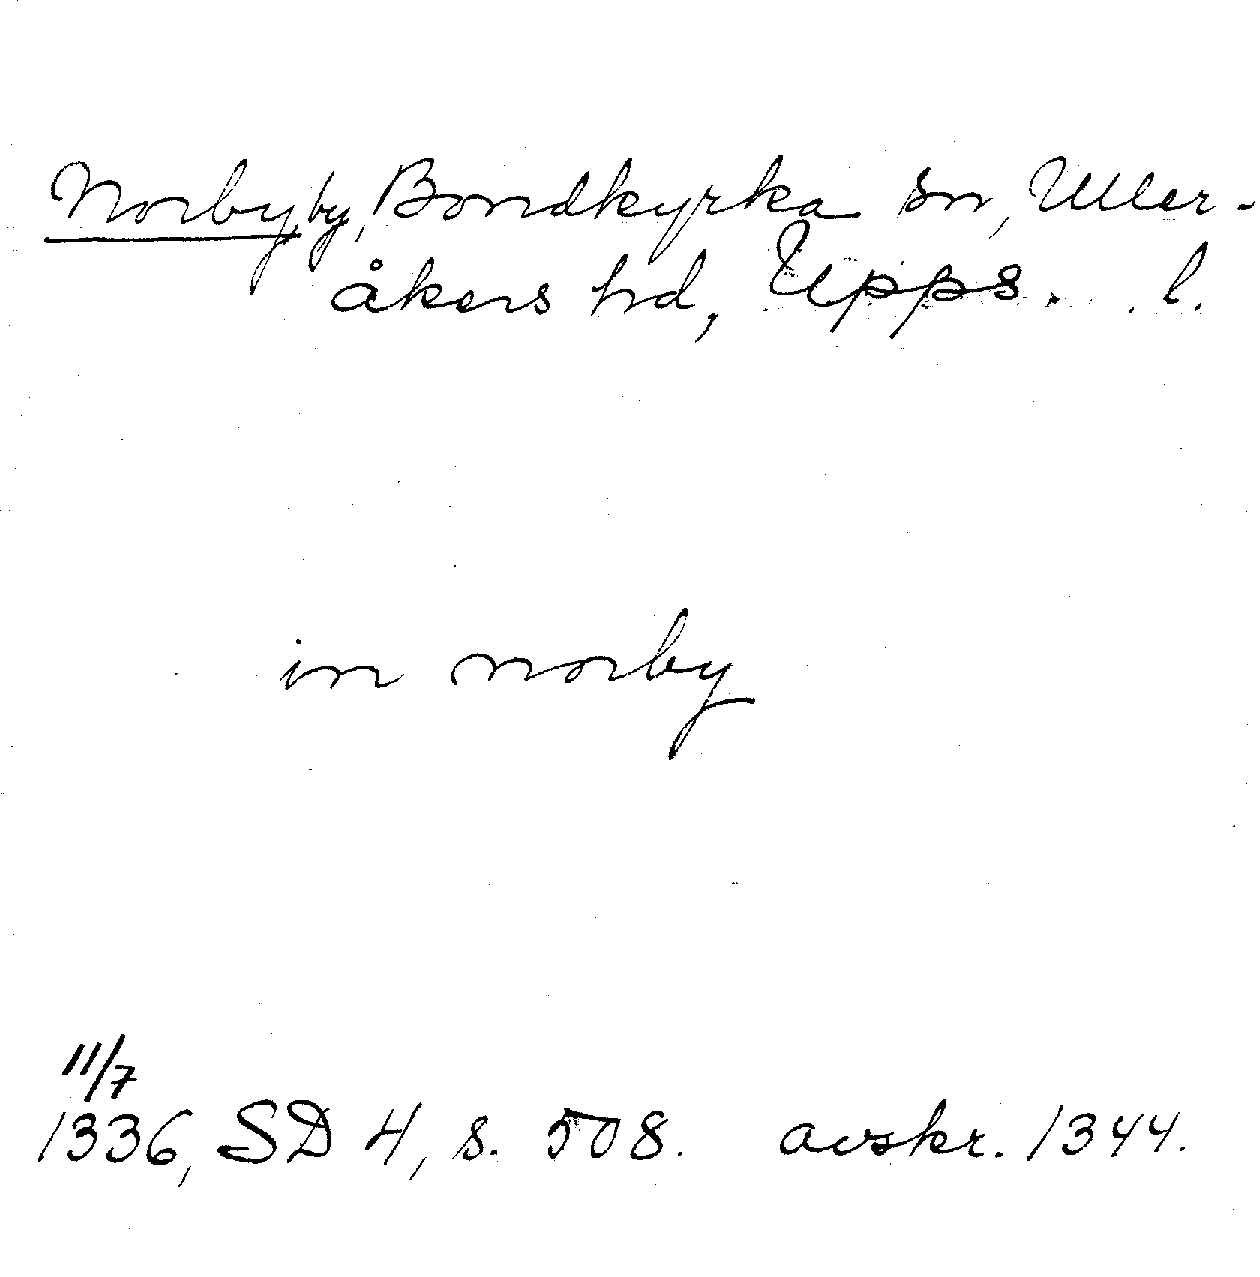 Norby, by, Bondkyrka sn, Uller-
åkers hd, Upps. l.
in norby
11/7
1336, SD 4, s. 508. avskr. 1344.